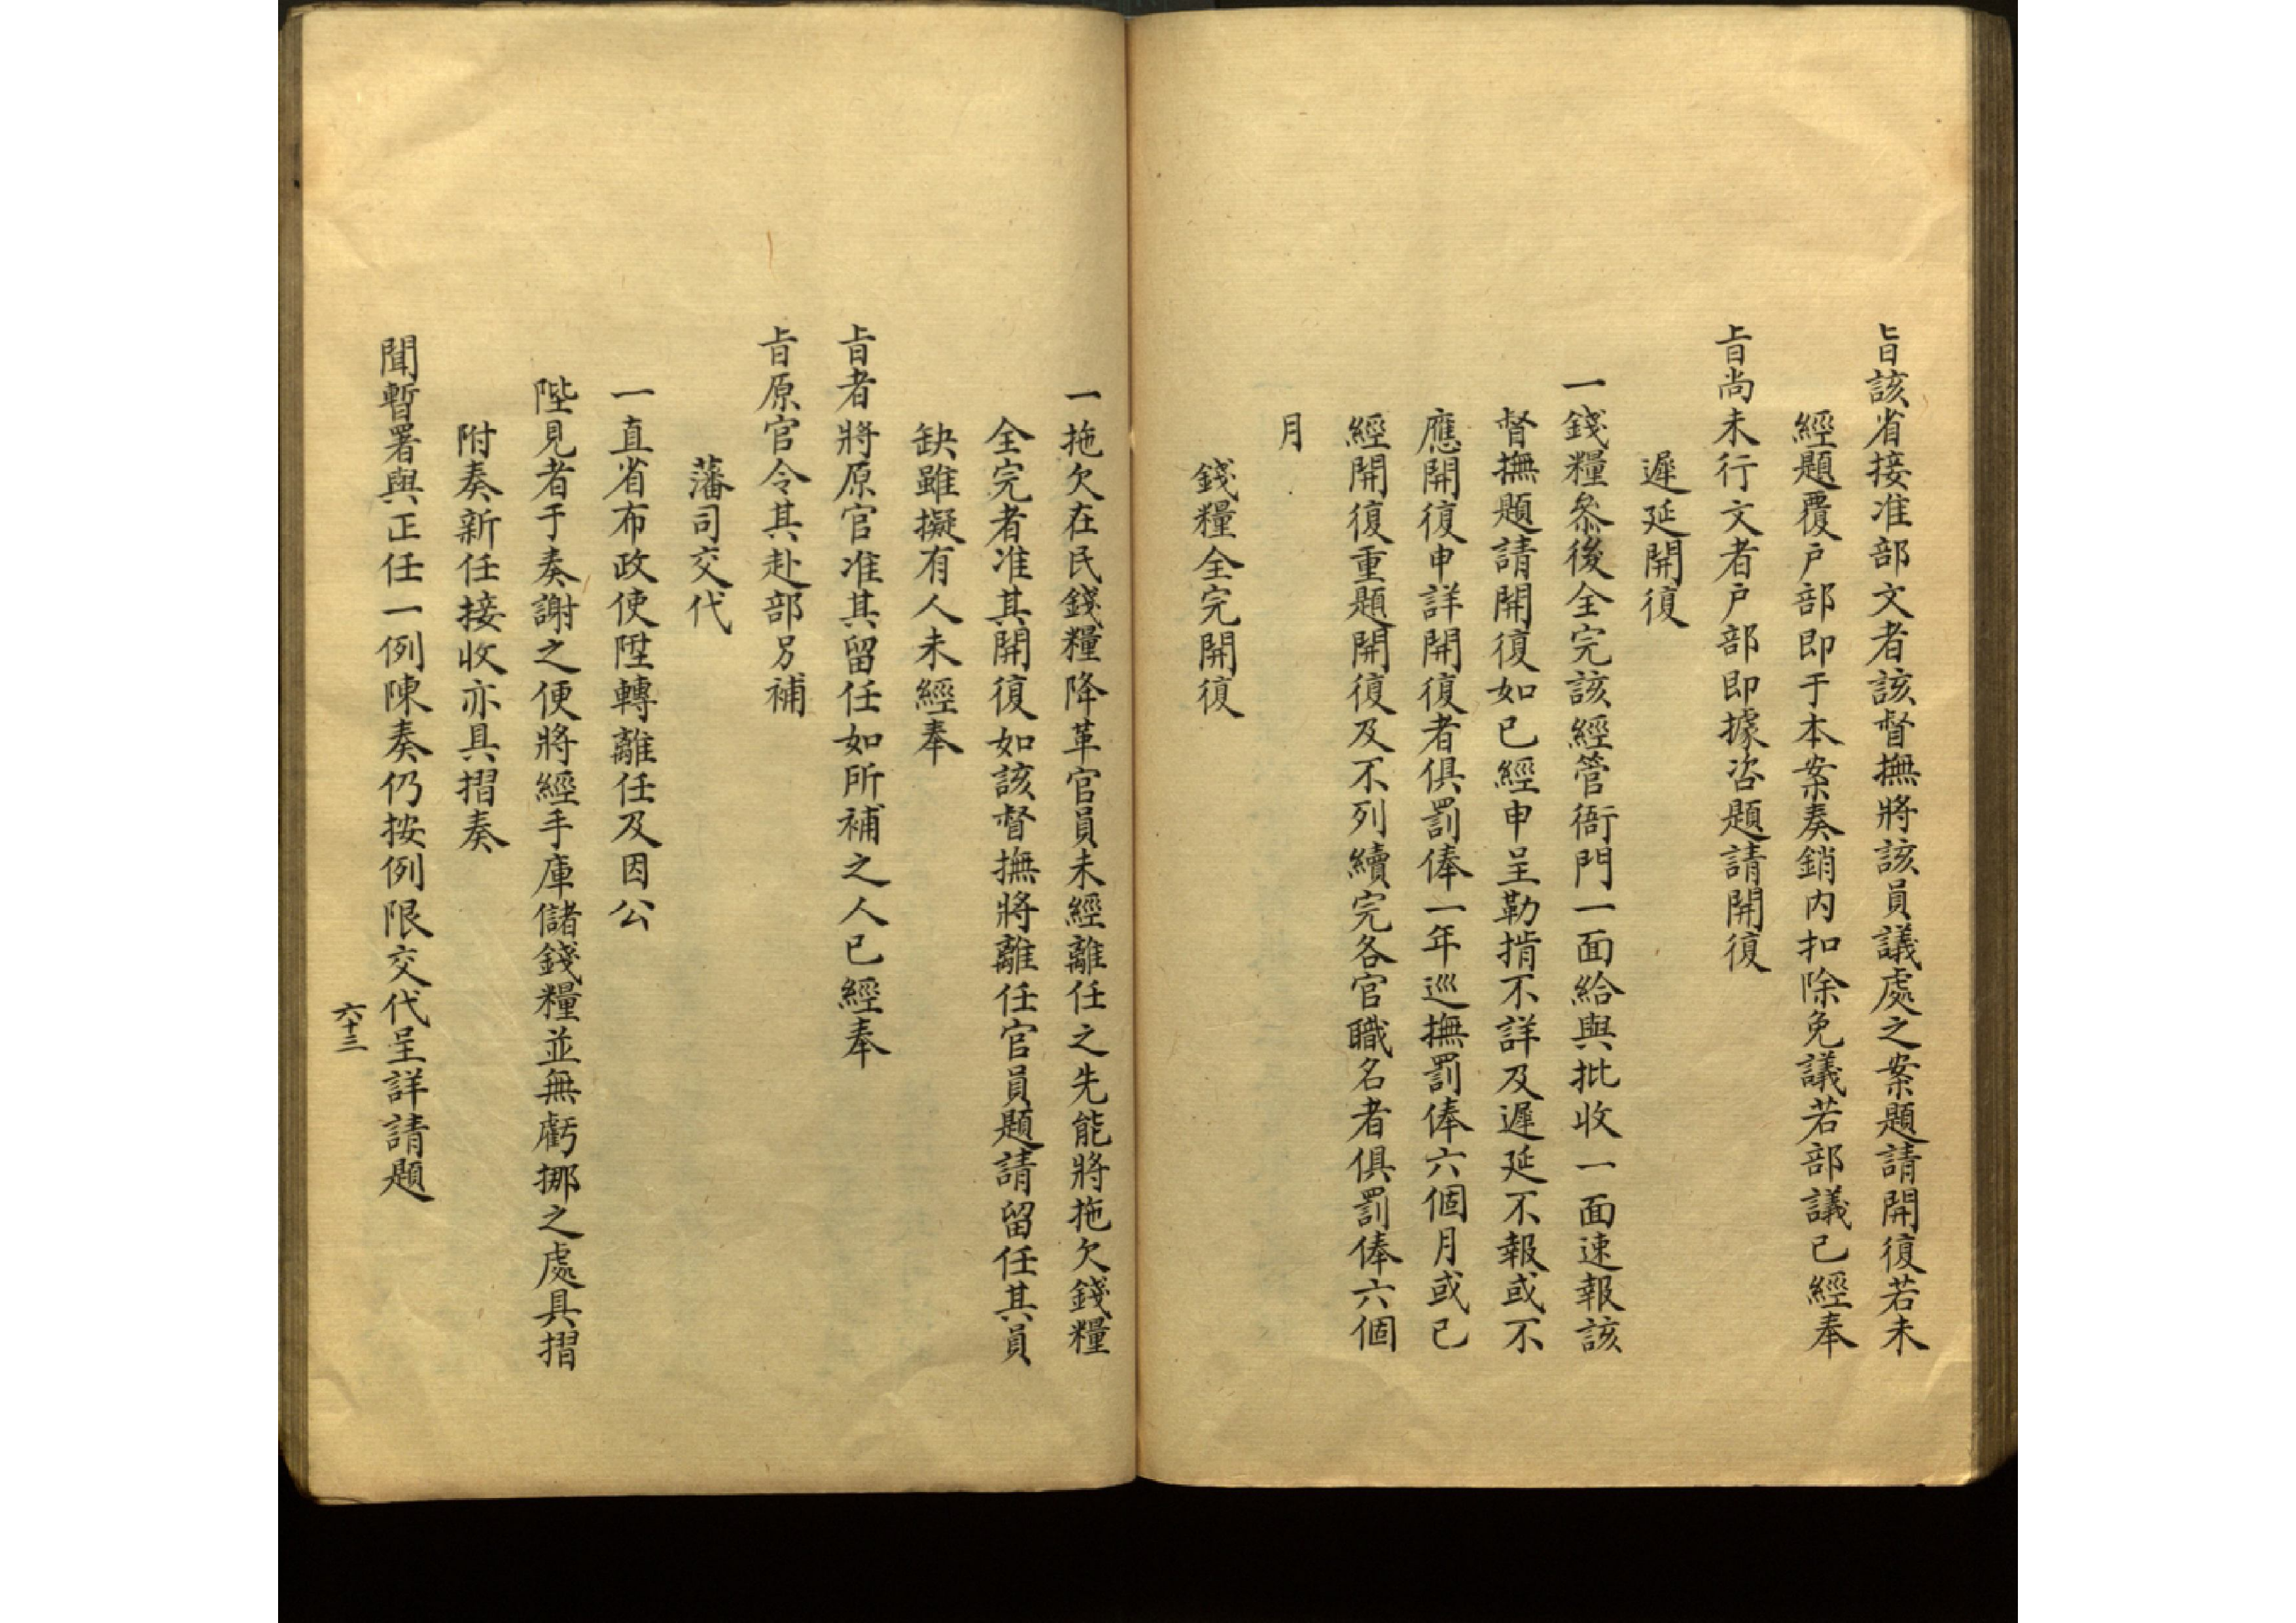 旨該省接准部文者該督撫將該員議處之案題請開復若未
經題覆戶部即于本案奏銷内扣除免議若部議已經奉
旨尚未行文者戶部即據咨題請開復
遲延開復
一錢糧叅後全完該經管衙門一面給與批收一面速報該
督撫題請開復如已經申呈勒掯不詳及遲延不報或不
應開復申詳開復者俱罰俸一年巡撫罰俸六個月或已
經開復重題開復及不列續完各官職名者俱罰俸六個
月
錢糧全完開復
一拖欠在民錢糧降革官員未經離任之先能將拖欠錢糧
全完者准其開復如該督撫將離任官員題請留任其員
缺雖擬有人未經奉
旨者將原官准其留任如所補之人已經奉
旨原官令其赴部另補
藩司交代
一直省布政使陞轉離任及因公
陛見者于奏謝之便將經手庫儲錢糧並無虧挪之處具摺
附奏新任接收亦具摺奏
聞暫署與正任一例陳奏仍按例限交代呈詳請題
六十三